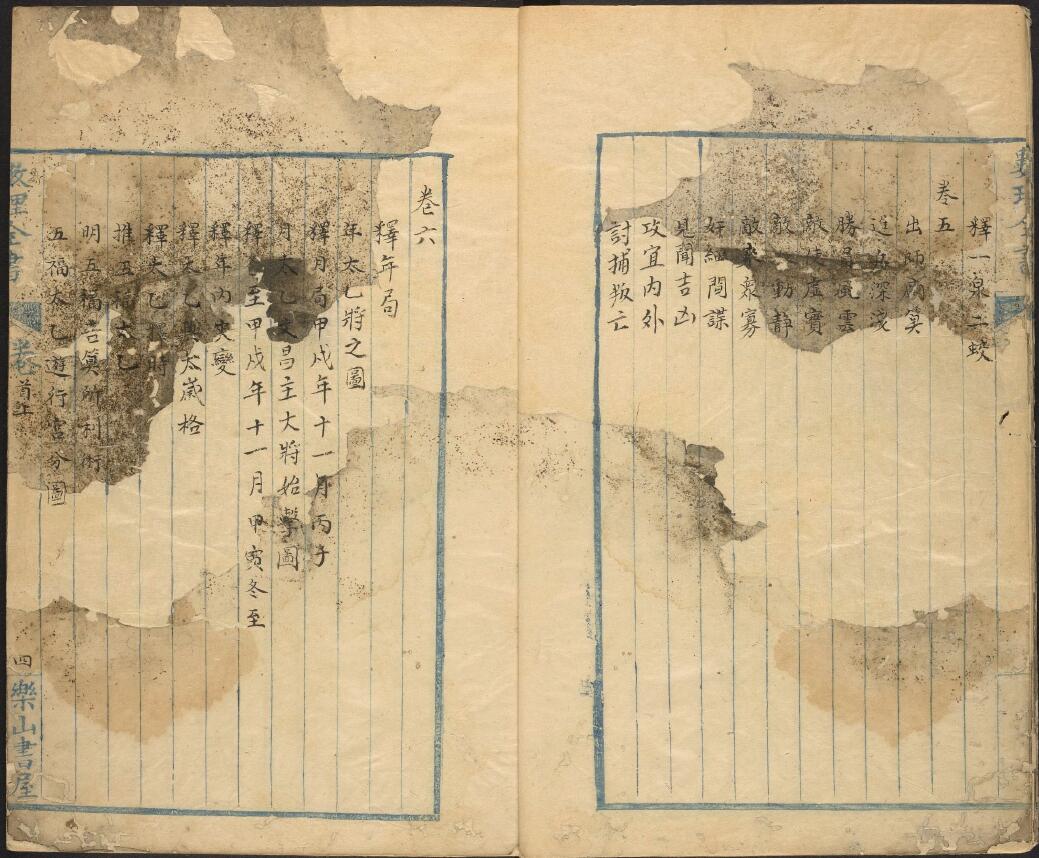 釋一泉二蛟
卷五
出師廟筭
近兵深淺
勝負風雲
敵使虛實
敵人動靜
敵衆寡
奸細間諜
見聞吉凶
攻宜內外
討捕叛亡
卷六
釋年局
年太乙將之圖
釋月局甲戌年十一月丙子
月太乙文昌主大將始擊圖
釋至甲戌年十一月甲寅冬至
釋年內災變
釋太乙與太歲格
釋太乙 時
推五福太乙
明五福吉筭所利術
五福太乙遊行宮分圖
數理全書
卷首上
四
樂山書屋